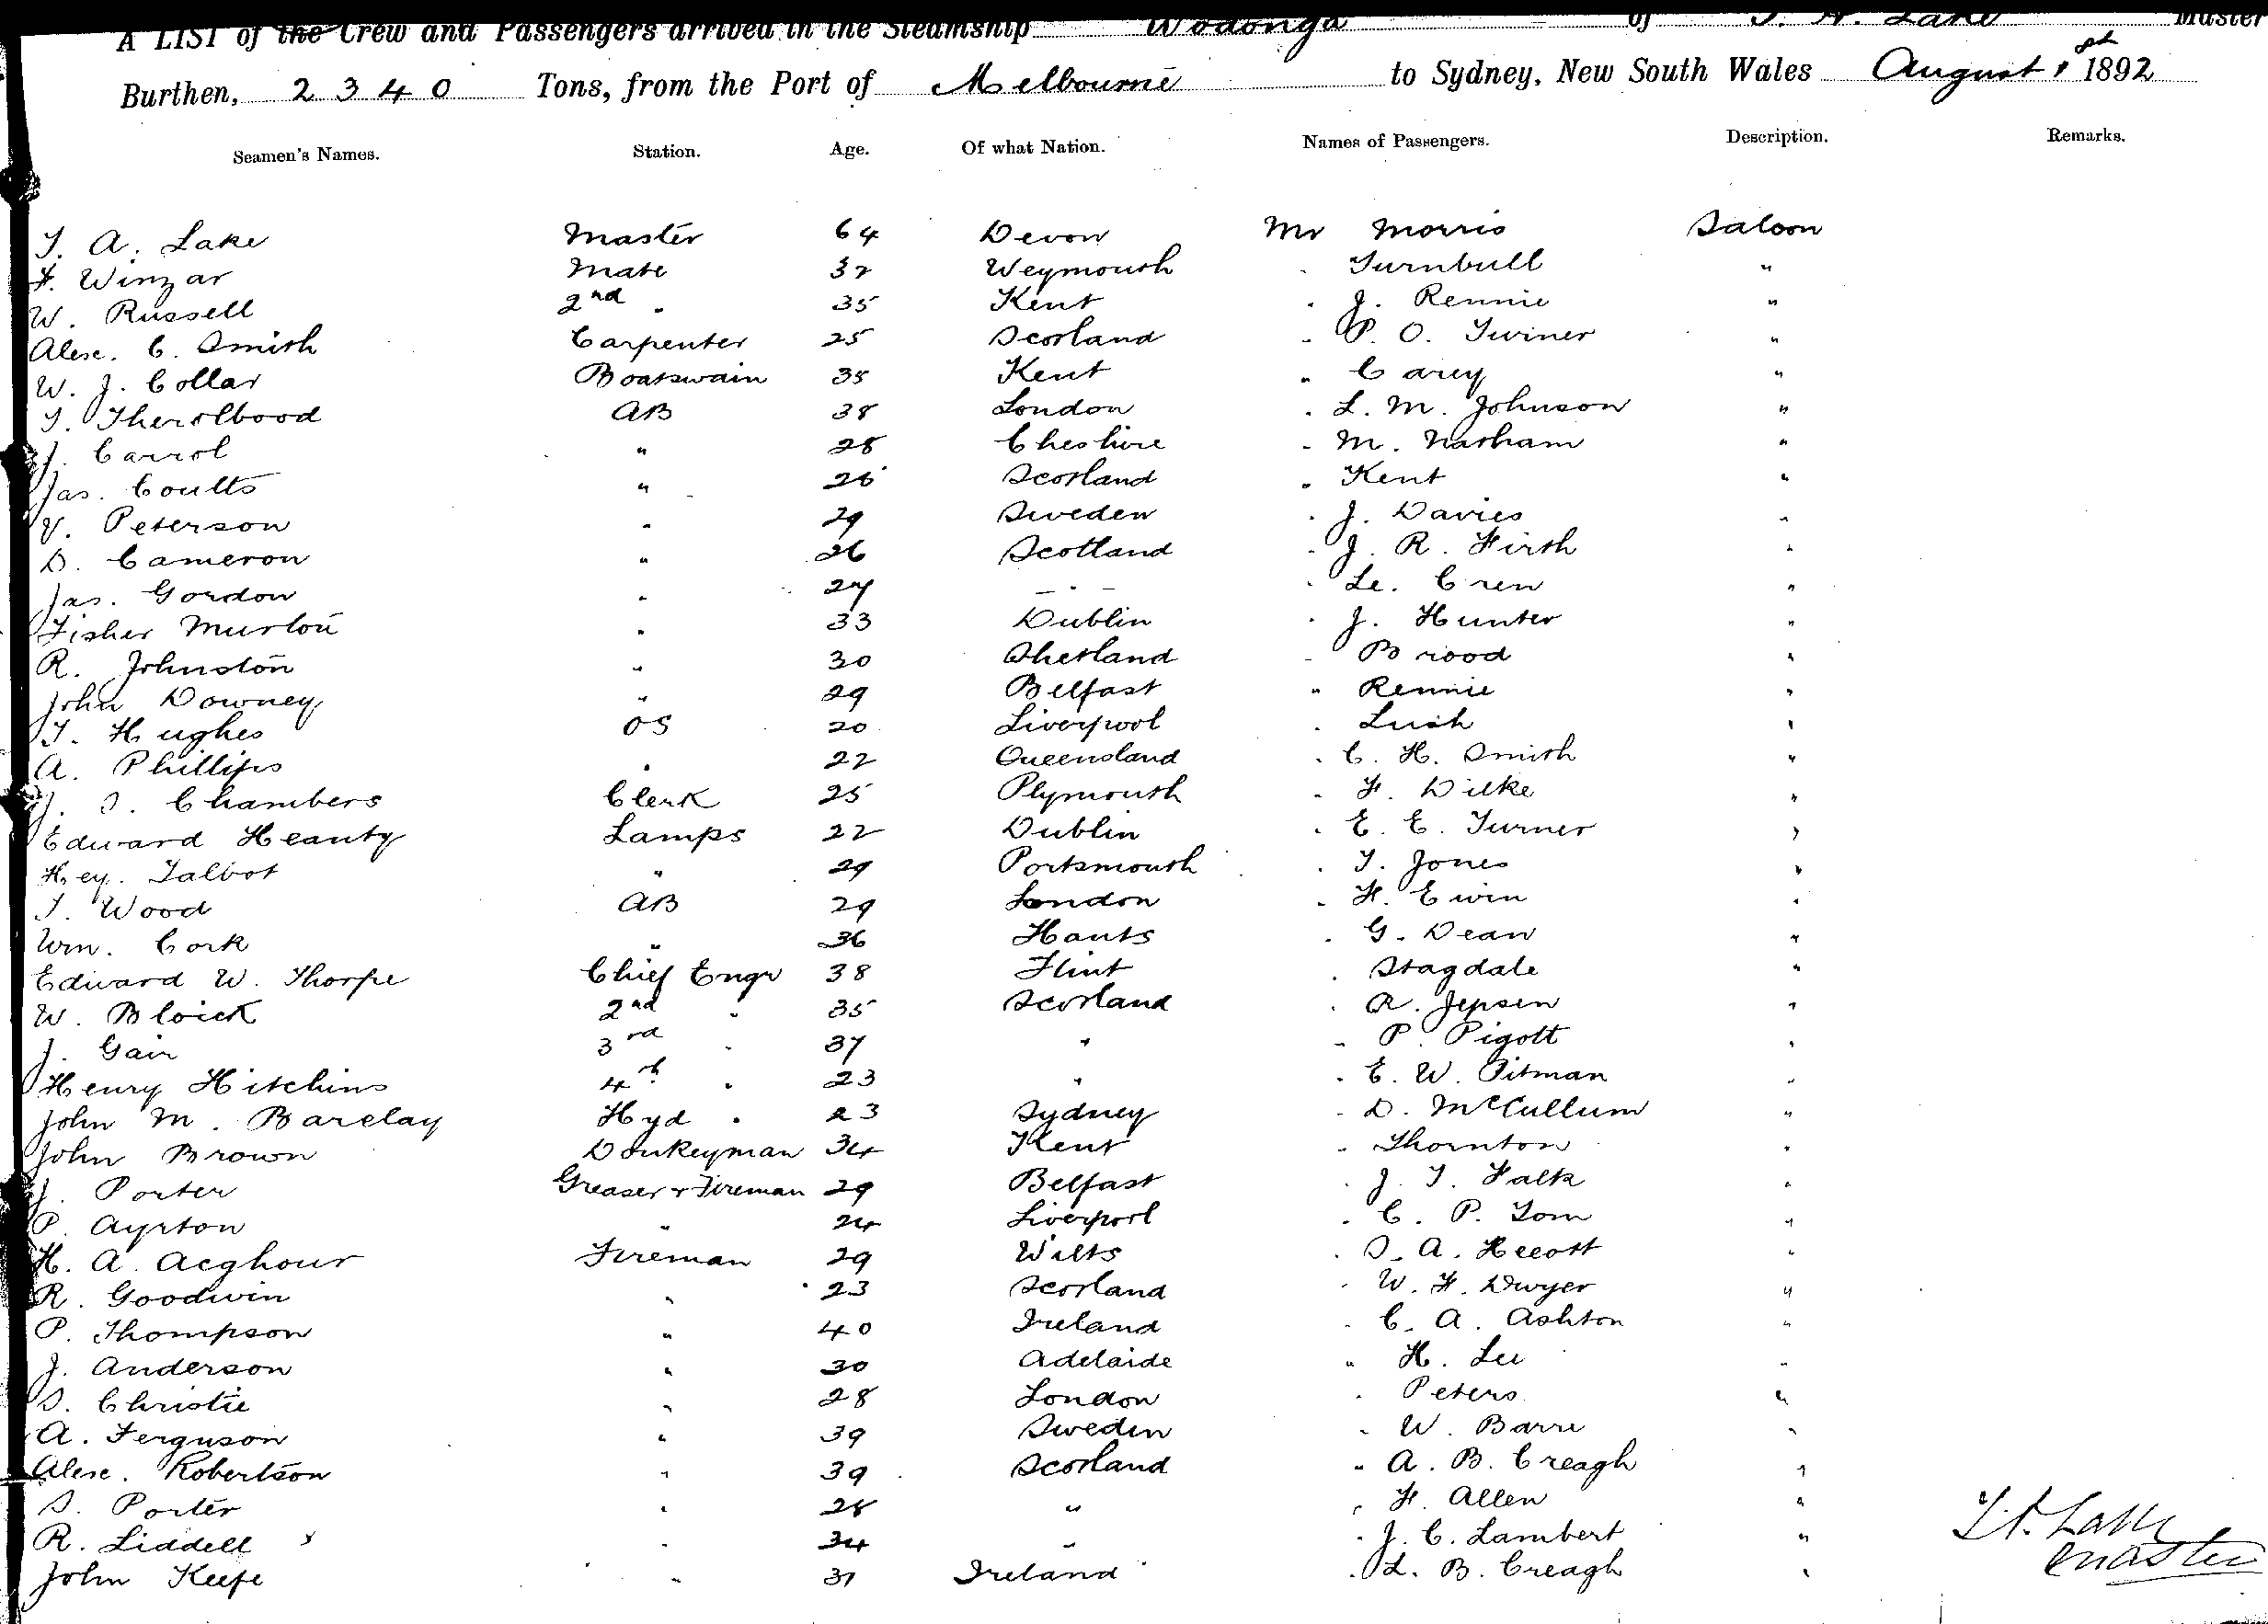 A LIST of the Crew and Passengers arrived in the Steamship Wodonga of T. A. Lake Master
Burthen, 2340 Tons, from the Port of Melbourne to Sydney, New South Wales August 1st 1892
Seamen's Names. Station. Age. Of what Nation. Names of Passengers. Description. Remarks.
T. A. Lake Master 64 Devon Mr Morris Saloon
F. Winzar Mate 32 Weymouth " Turnbull "
W. Russell 2nd " 35 Kent " J. Rennie "
Alex. C. Smith Carpenter 25 Scotland " P. O. Twiner "
W. J. Collar Boatswain 35 Kent " Carey "
T. AB 38 London " L. M. Johnson "
J. Carrol " 28 Cheshire " M. Natham "
Jas. Coutts " 26 Scotland " Kent "
V. Peterson " 29 Sweden " J. Davies "
D. Cameron " 26 Scotland " J. R. Firth "
Jas. Gordon " 27 - " - " Le. Cren "
Fisher Murton " 33 Dublin " J. Hunter "
R. Johnston " 30 Shetland " Brood "
John Downey " 29 Belfast " Rennie "
T. Hughes OS 20 Liverpool " Lush "
A. Phillips " 22 Queensland " C. H. Smith "
J. S. Chambers Clerk 25 Plymouth " F. Dilke "
Edward Heanty Lamps 22 Dublin " E. E. Turner "
Hey. Talbot " 29 Portsmouth " T. Jones "
T. Wood AB 29 London " H. Ewin "
Wm. Cork " 36 Hants " G. Dean "
Edward W. Thorpe Chief Engr 38 Flint " Stagdale "
W. Bloick 2nd " 35 Scotland " R. Jepsen "
J. Gair 3rd " 37 " " P. Pigott "
Henry Hitchins 4th " 23 " " E. W. Pitman "
John M. Barclay Hyd " 23 Sydney " D. McCullum "
John Brown Donkeyman 34 Kent " Thornton "
J. Porter Greaser & Fireman 29 Belfast " J. T. Falk "
P. Ayrton " 24 Liverpool " C. P. Tom "
H. A. Acghour Fireman 29 Wilts " S. A. "
R. Goodwin " 23 Scotland " W. F. Dwyer "
P. Thompson " 40 Ireland " C. A. Ashton "
J. Anderson " 30 Adelaide " H. Lee "
S. Christie " 28 London " Peters "
A. Ferguson " 39 Sweden " W. Barre "
Alex. Robertson " 39 Scotland " A. B. Creagh "
S. Porter " 28 " " F. Allen "
R. Liddell " 34 " " J. C. Lambert "
John Keefe " 31 Ireland " L. B. Creagh "
T. A. Lake
Master